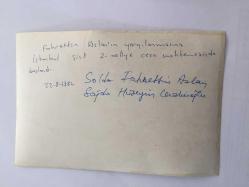 Fahrettin Aslan'ın yargılanmasına
İstanbul Şişli 2. asliye ceza mahkemesinde
başlandı.
22-8-1984 Solda Fahrettin Aslan
Sağda Hüseyin